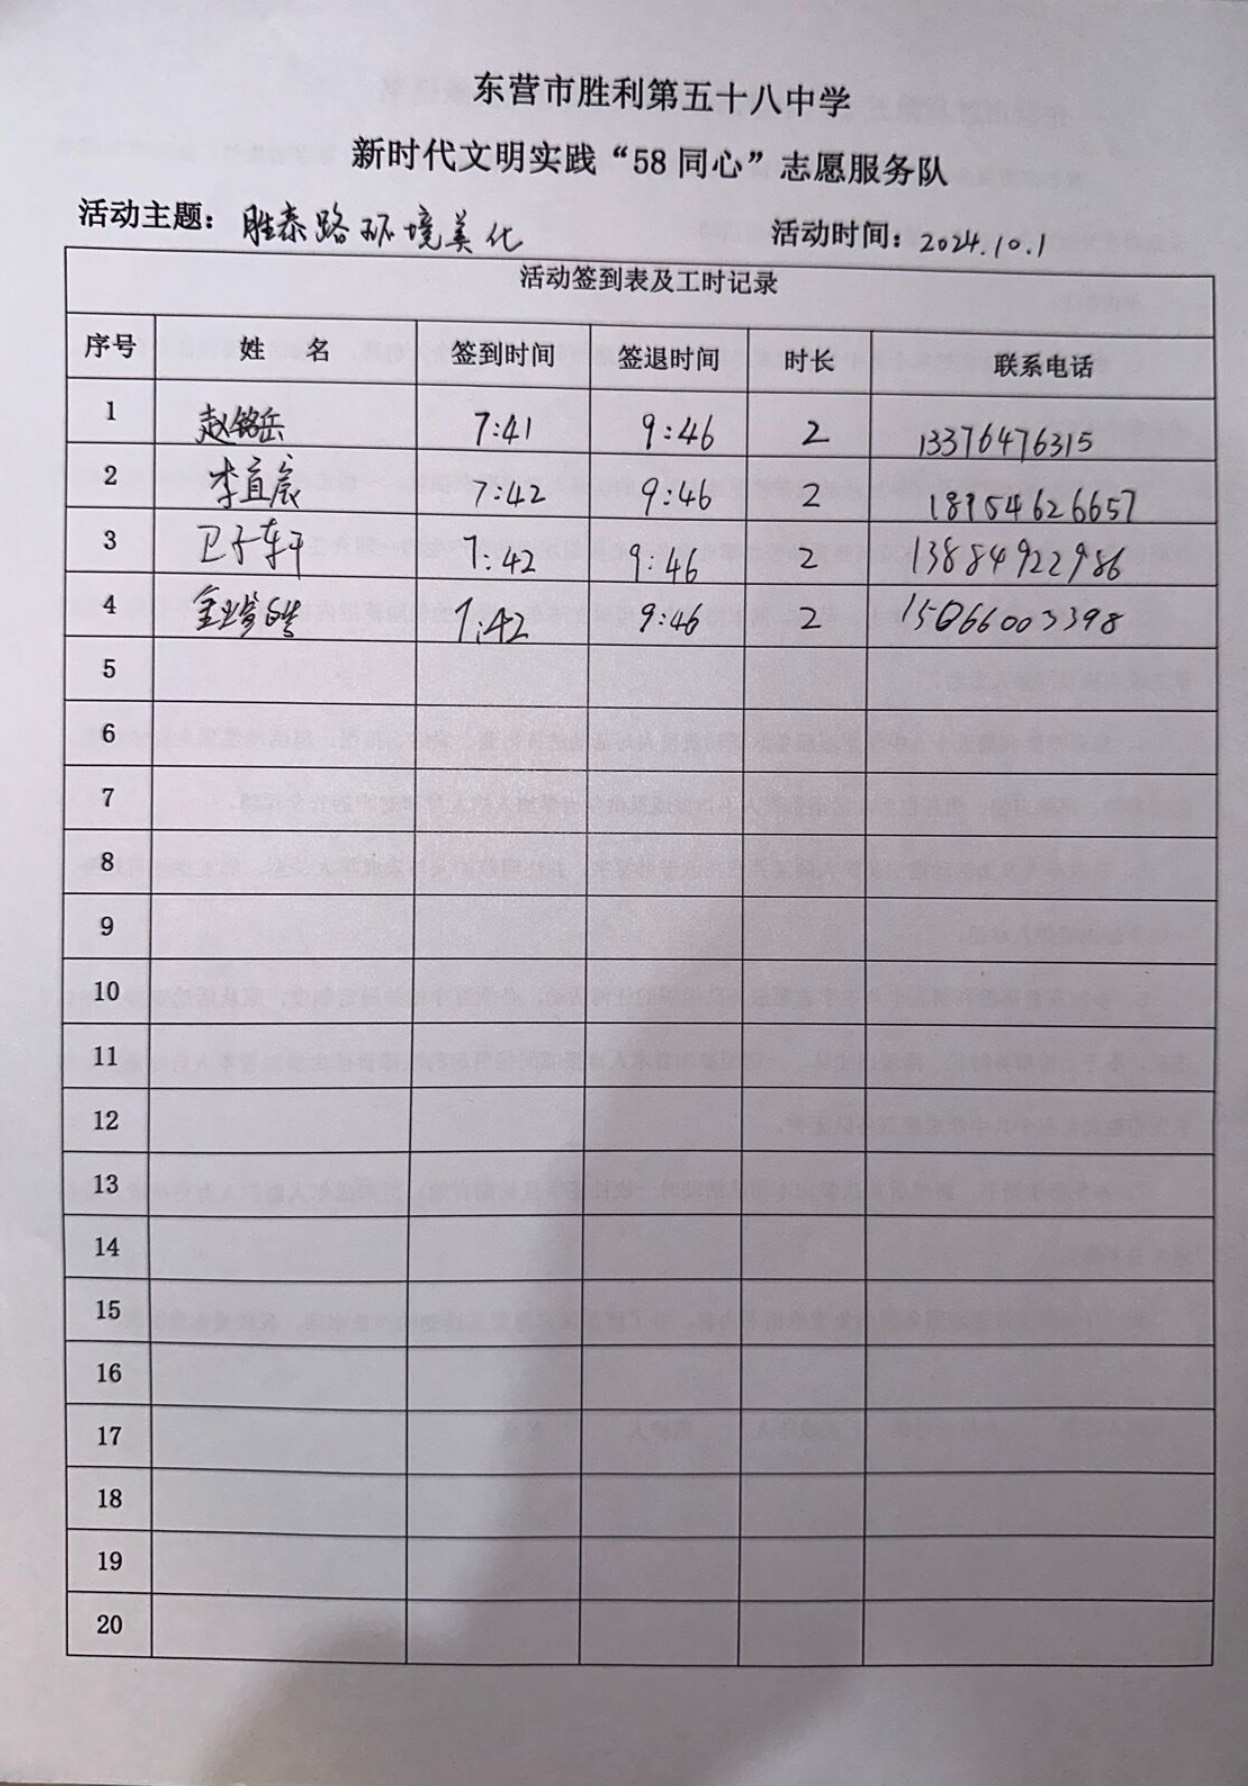 东营市胜利第五十八中学
新时代文明实践“58同心”志愿服务队
活动主题：胜泰路环境美化 活动时间：2024.10.1
活动签到表及工时记录
序号 姓 名 签到时间 签退时间 时长 联系电话
1 赵铭岳 7:41 9:46 2 13376476315
2 李宜宸 7:42 9:46 2 18954626657
3 卫子轩 7:42 9:46 2 13884922986
4 7:42 9:46 2 15066003398
5
6
7
8
9
10
11
12
13
14
15
16
17
18
19
20